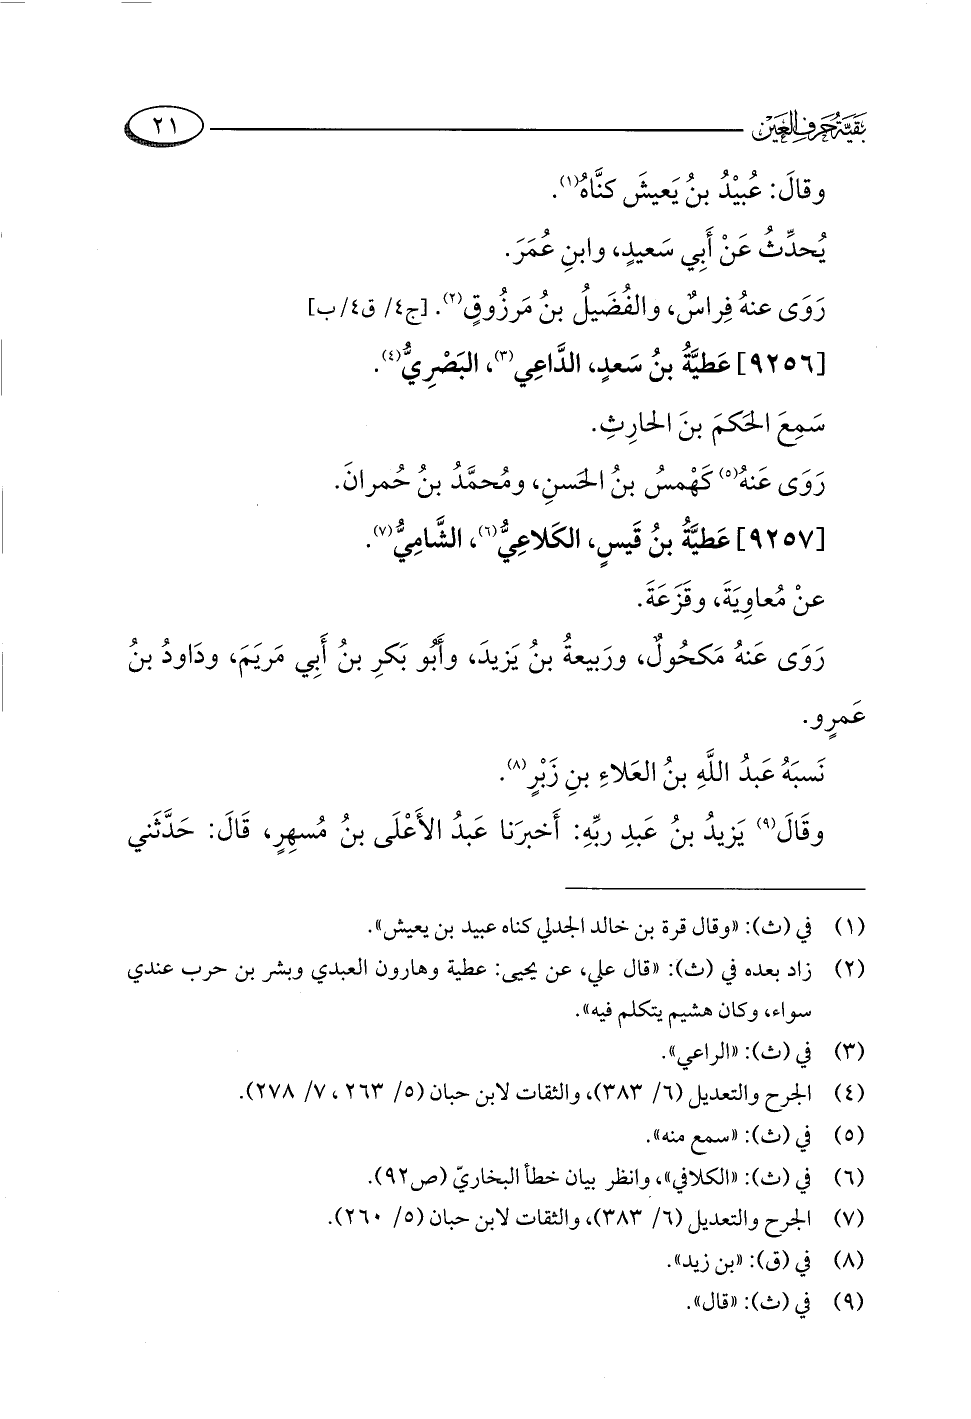 بقية حرف العين
٢١
وقالَ: عُبيْدُ بنُ يَعيشَ كنَّاهُ(١).
يُحدِّثُ عَنْ أَبِي سَعيدٍ، وابنِ عُمَرَ.
رَوَى عنهُ فِراسٌ، والفُضَيلُ بنُ مَرزُوقٍ(٢). [ج٤/ ق٤/ ب]
[٩٢٥٦] عَطيَّةُ بنُ سَعدٍ، الدَّاعِي(٣)، البَصْرِيُّ(٤).
سَمِعَ الحَكمَ بنَ الحارثِ.
رَوَى عَنهُ(٥) كَهْمسُ بنُ الحَسنِ، ومُحمَّدُ بنُ حُمرانَ.
[٩٢٥٧] عَطيَّةُ بنُ قَيسٍ، الكَلاعِيُّ(٦)، الشَّامِيُّ(٧).
عنْ مُعاوِيَةَ، وقَزَعَةَ.
رَوَى عَنهُ مَكحُولٌ، ورَبيعةُ بنُ يَزيدَ، وأَبُو بَكرِ بنُ أَبِي مَريَمَ، ودَاودُ بنُ
عَمرٍو.
نَسبَهُ عَبدُ اللَّهِ بنُ العَلاءِ بنِ زَبْرٍ(٨).
وقَالَ(٩) يَزيدُ بنُ عَبدِ ربِّهِ: أَخبرَنا عَبدُ الأَعْلَى بنُ مُسهِرٍ، قَالَ: حَدَّثَني
(١) في (ث): «وقال قرة بن خالد الجدلي كناه عبيد بن يعيش».
(٢) زاد بعده في (ث): «قال علي، عن يحيى: عطية وهارون العبدي وبشر بن حرب عندي
سواء، وكان هشيم يتكلم فيه».
(٣) في (ث): «الراعي».
(٤) الجرح والتعديل (٦/ ٣٨٣)، والثقات لابن حبان (٥/ ٢٦٣، ٧/ ٢٧٨).
(٥) في (ث): «سمع منه».
(٦) في (ث): «الكلافي»، وانظر بيان خطأ البخاريّ (ص٩٢).
(٧) الجرح والتعديل (٦/ ٣٨٣)، والثقات لابن حبان (٥/ ٢٦٠).
(٨) في (ق): «بن زيد».
(٩) في (ث): «قال».